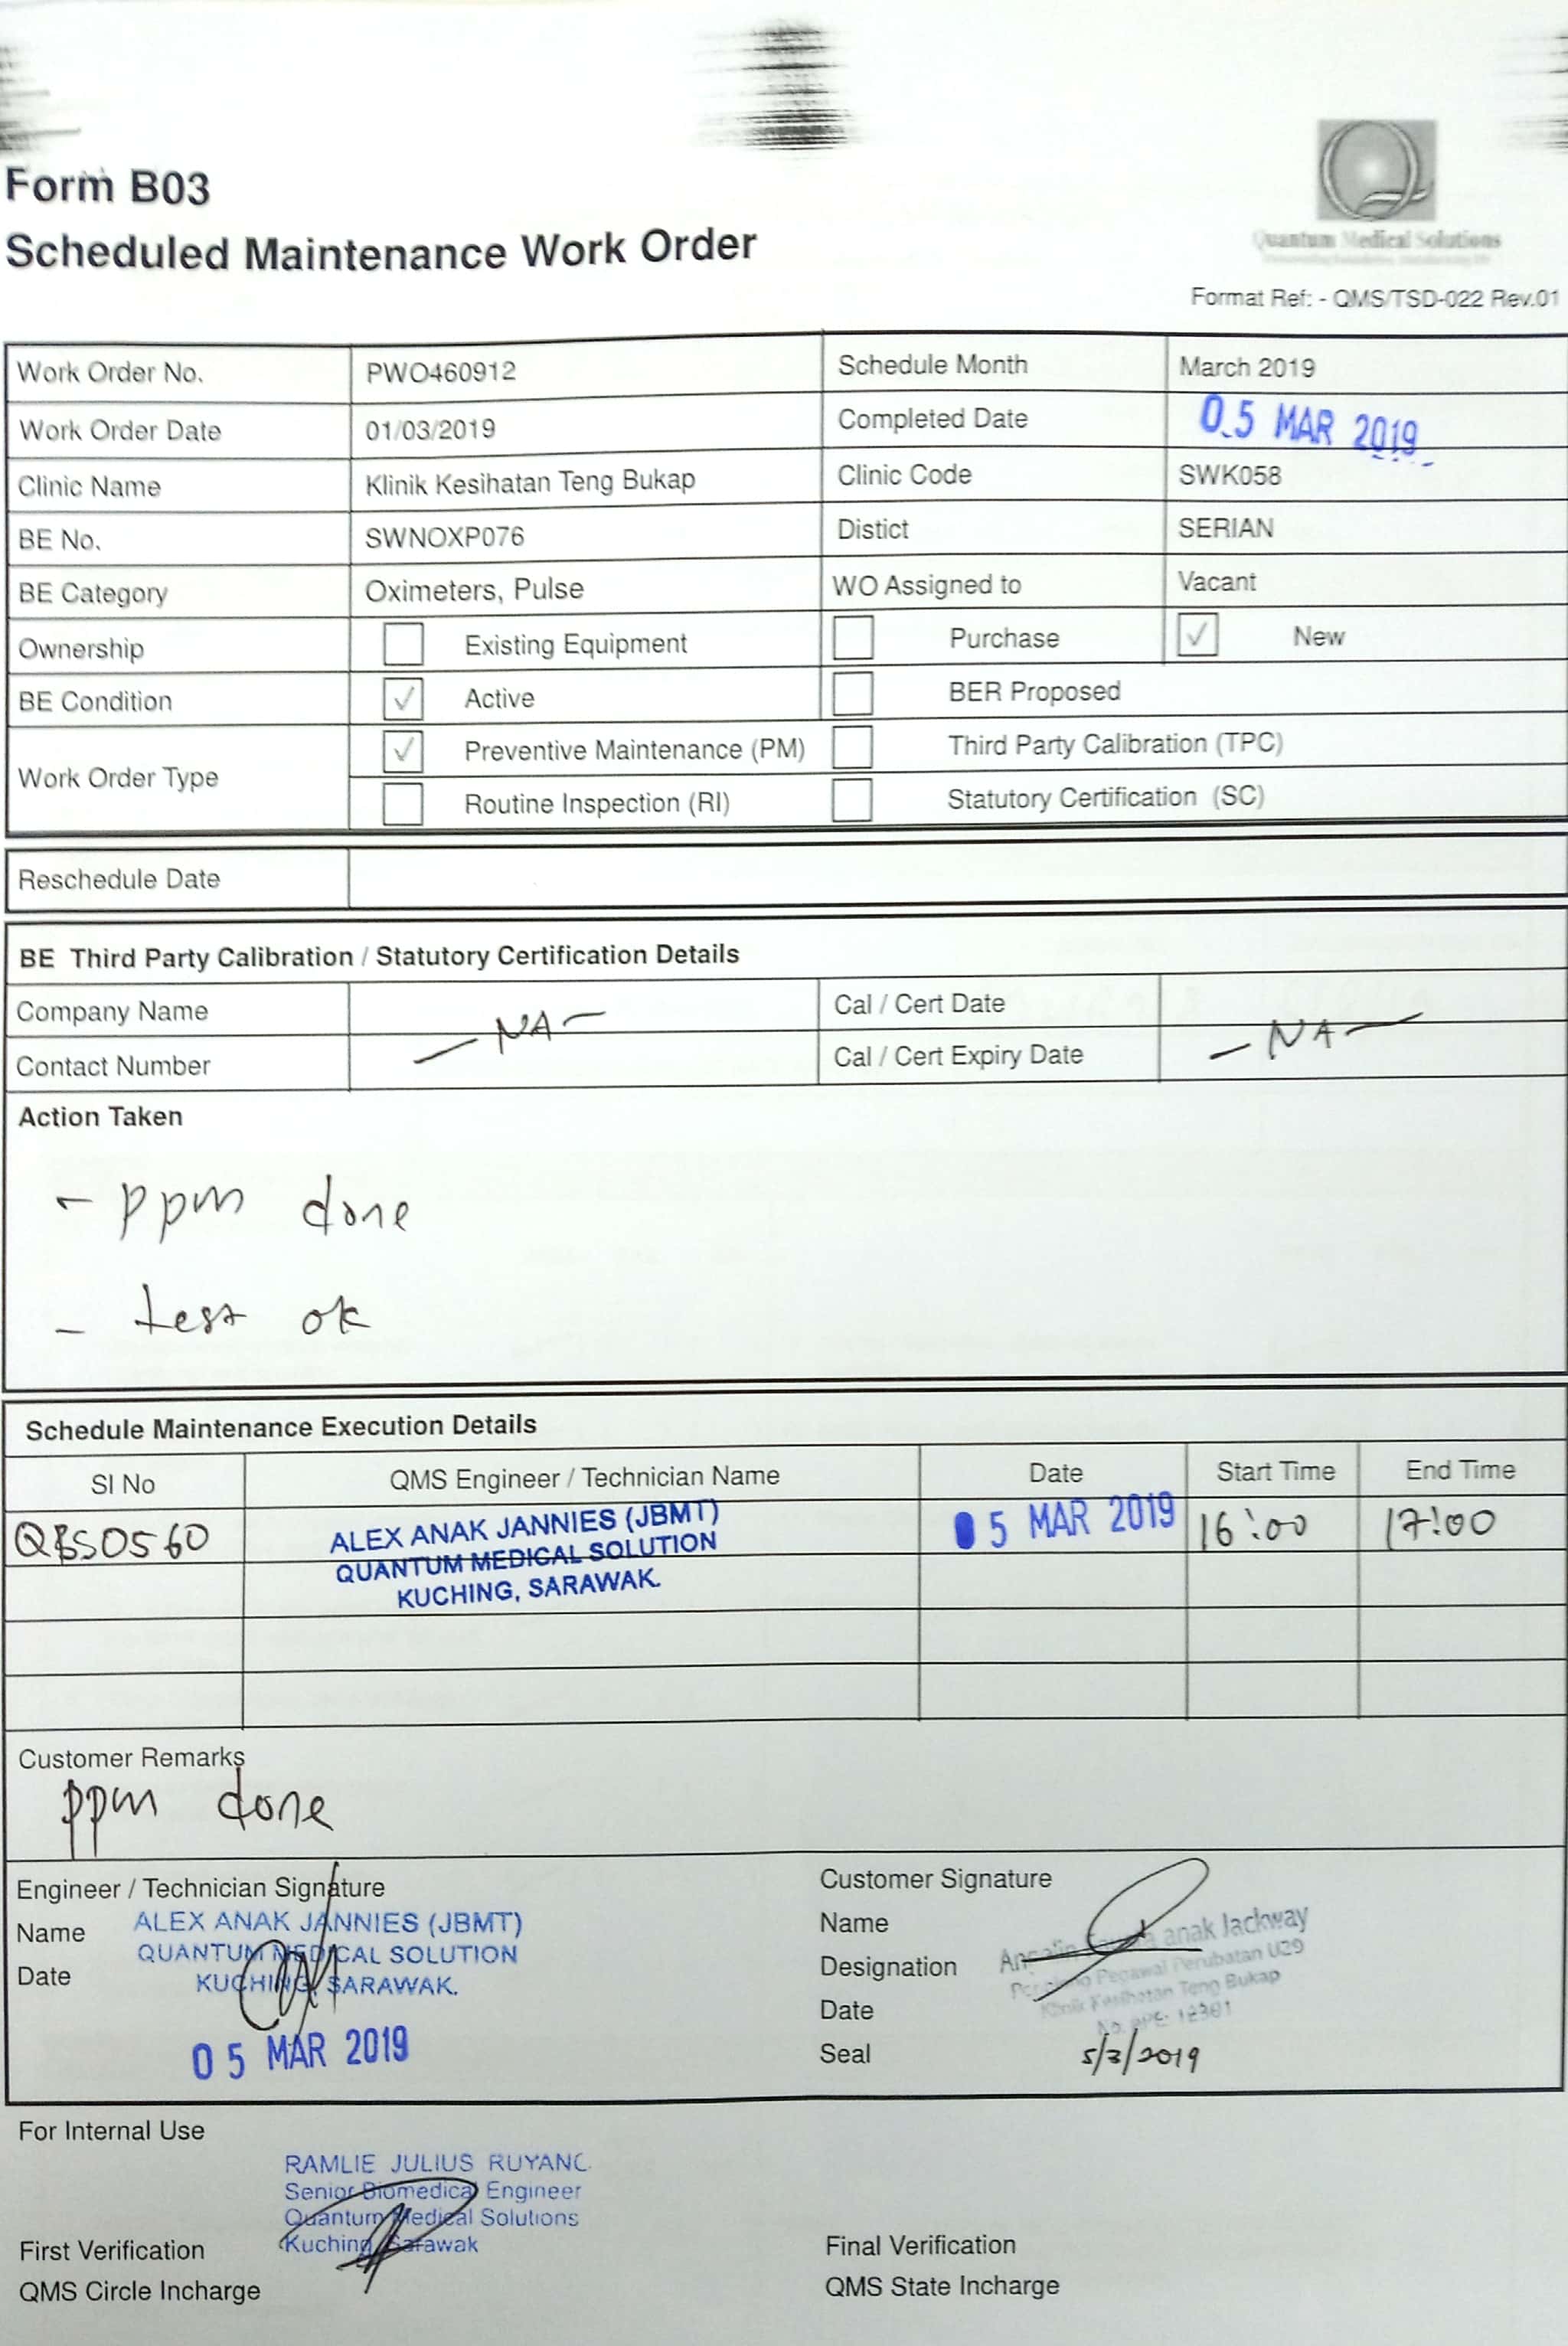 Form B03
Scheduled Maintenance Work Order
Quantum Medical Solutions
Format Ref: - QMS/TSD-022 Rev.01
Work Order No. PWO460912 Schedule Month March 2019
Work Order Date 01/03/2019 Completed Date 05 MAR 2019
Clinic Name Klinik Kesihatan Teng Bukap Clinic Code SWK058
BE No. SWNOXP076 Distict SERIAN
BE Category Oximeters, Pulse WO Assigned to Vacant
Ownership Existing Equipment Purchase ✓ New
BE Condition ✓ Active BER Proposed
Work Order Type ✓ Preventive Maintenance (PM) Third Party Calibration (TPC)
Routine Inspection (RI) Statutory Certification (SC)
Reschedule Date
BE Third Party Calibration / Statutory Certification Details
Company Name Cal / Cert Date
— NA — — NA —
Contact Number Cal / Cert Expiry Date
Action Taken
- ppm done
- test ok
Schedule Maintenance Execution Details
SI No QMS Engineer / Technician Name Date Start Time End Time
QBS0560 ALEX ANAK JANNIES (JBMT) 05 MAR 2019 16:00 17:00
QUANTUM MEDICAL SOLUTION
KUCHING, SARAWAK.
Customer Remarks
ppm done
Engineer / Technician Signature
Name ALEX ANAK JANNIES (JBMT)
QUANTUM MEDICAL SOLUTION
Date KUCHING, SARAWAK.
05 MAR 2019
Customer Signature
Name anak Jackway
Designation Pegawai Perubatan U29
Klinik Kesihatan Teng Bukap
Date
Seal 5/3/2019
For Internal Use
RAMLIE JULIUS RUYANG
Senior Biomedical Engineer
Quantum Medical Solutions
Kuching, Sarawak
First Verification Final Verification
QMS Circle Incharge QMS State Incharge